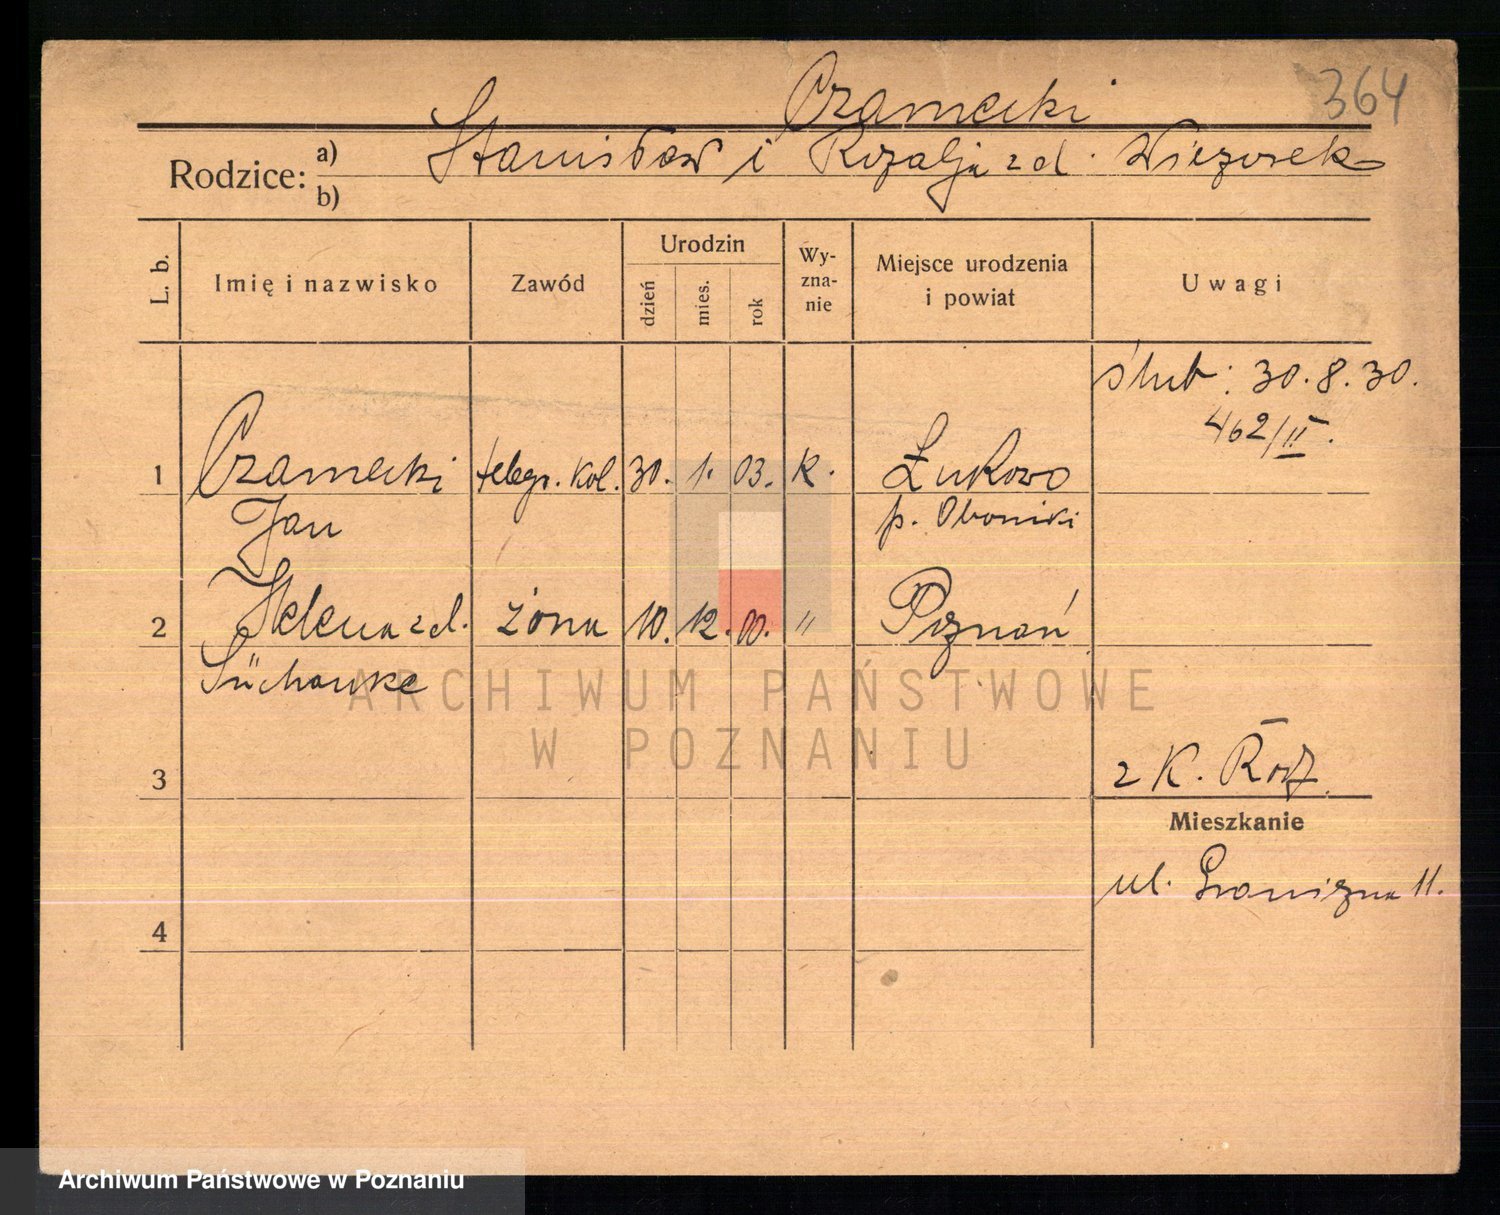 Czarnecki
364
Rodzice: a) Stanisław i Rozalja z d. Wieczorek
b)
L. b.
Imię i nazwisko
Zawód
Urodzin
dzień
mies.
rok
Wy-
zna-
nie
Miejsce urodzenia
i powiat
Uwagi
ślub: 30.8.30.
462/II.
1 Czarnecki telegr. kol. 30. 1. 03. k. Łukowo
Jan p. Oborniki
2 Helena z d. żona 10. 12. 00. " Poznań
ARCHIWUM PAŃSTWOWE
W POZNANIU
z K. Rodz.
3
Mieszkanie
ul. Graniczna 11.
4
Archiwum Państwowe w Poznaniu